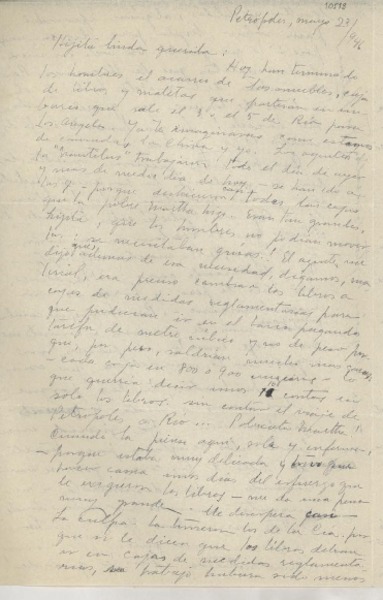 10518
Petrópolis, mayo 23/
1946
Viejita linda querida:
Hoy han terminado
los hombres el acarreo de los muebles, cajas
de libros y maletas que partirán en un
barco que sale el 3 o el 5 de Río para
Los Angeles. Ya te imaginarás como estamos
de cansadas, la China y yo. Los
todo el día de ayer
y más de medio día de hoy
las 7 - porque deshicieron todos los cajones
que la pobre Martha hizo. Eran tan grandes,
hijita, que los hombres no podían mover
El agente me
dijo que además de esa
era preciso cambiar los libros a
cajas de medidas reglamentarias para
que pudieran ir en el barco pagando
tarifa de metro cúbico y no de peso por
que, por peso, saldrían mucho más caras
- cada caja en 800 o 900 cruzeiros - lo
que querría decir unos contos en
solo los libros, sin contar el viaje de
Petrópolis a Río... Pobrecita Martha!
Cuando la pienso aquí, sola y enferma,
- porque estaba muy delicada y tuvo que
hacer cama unos días del esfuerzo que
le exigieron los libros - me da una pena
muy grande. Me desespera
La culpa la tuvieron los de la Cia. por
que si le dicen que los libros debían
ir en cajas de medidas reglamenta-
rias, su trabajo hubiera sido menos